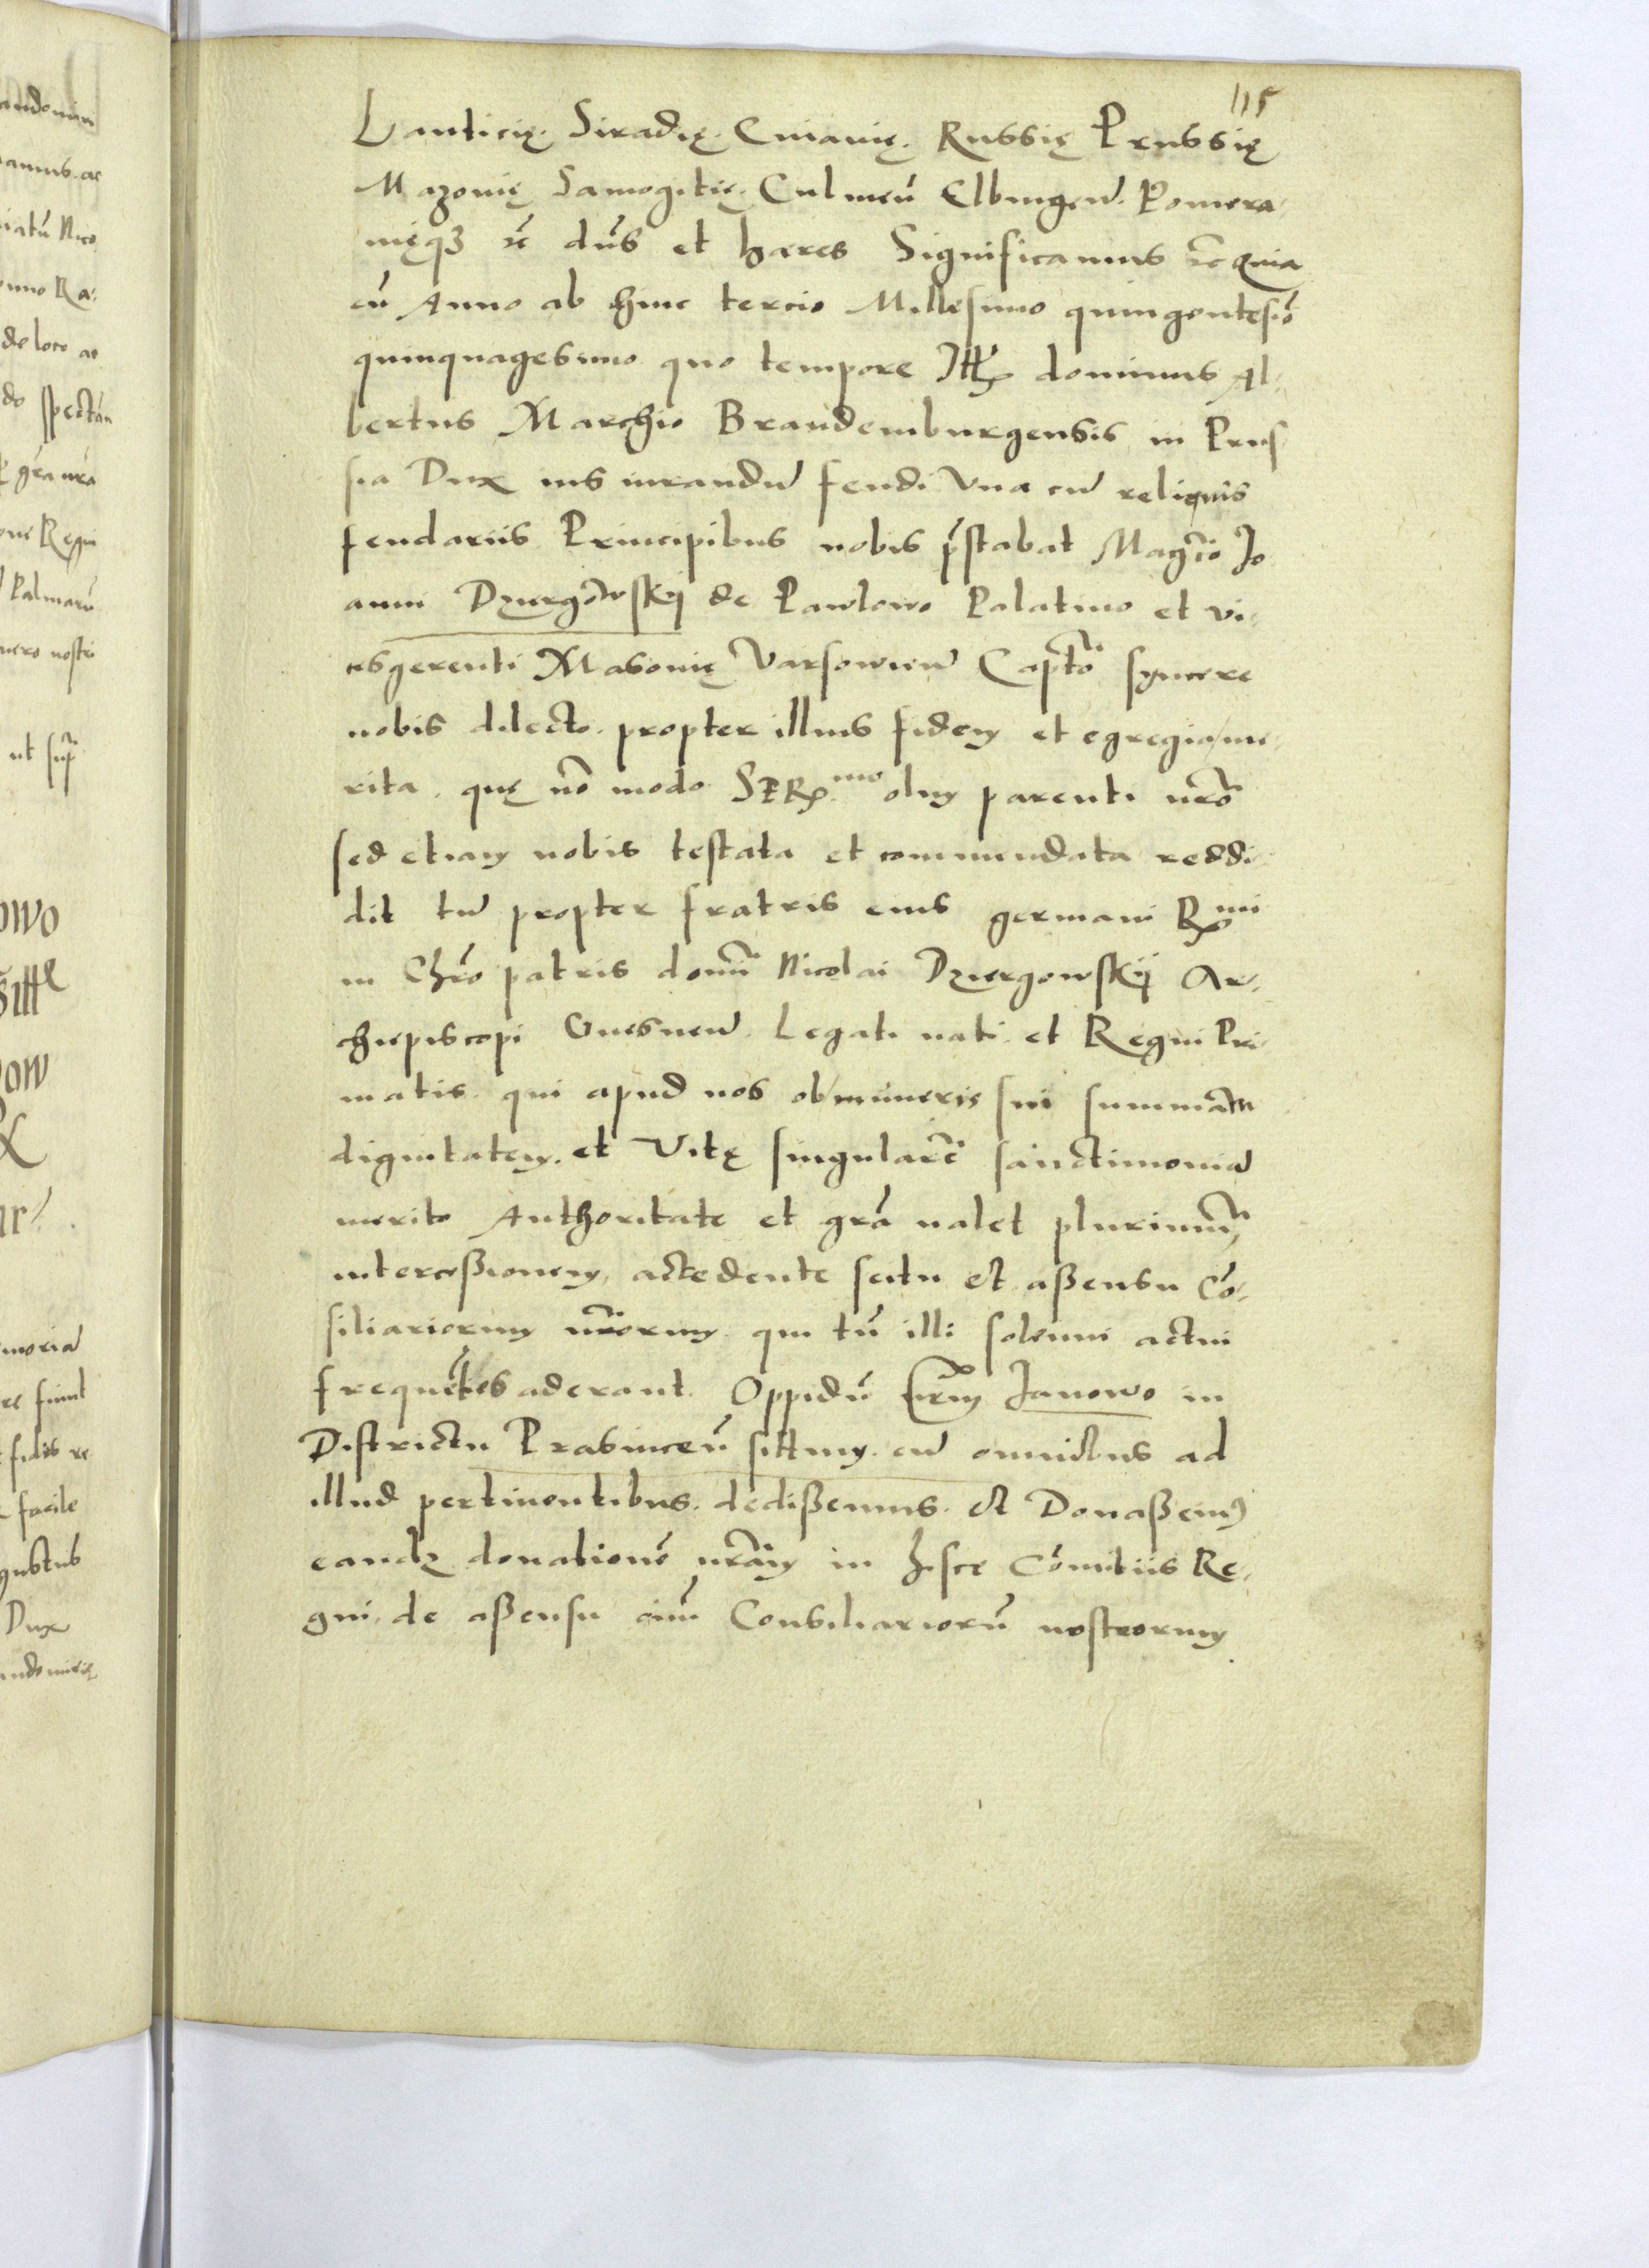 115
Lanticię. Siradię. Cuiauię. Russię Prussię
Mazouię Samogitię. Culmeñ Elbingeñ. Pomera-
nięqȝ ꝛc̃ dñs et hæres Significamus ꝛc̃ Quia
cũ Anno ab hinc tercio Millesimo quingentesiõ
quinquagesimo quo tempore Ill̃ꝫ dominus Al-
bertus Marchio Brandemburgensis in Prus
sia Dux ius iurandũ feudi Vna cũ reliquis
feudariis Principibus nobis p̃stabat Magc̃o Jo
anni Dzyergowskij de Pawlowo Palatino et vi-
cesgerenti Masouię Varsouieñ Capt̃o syncere
nobis dilecto. propter illius fidem et egregia me-
rita. quę nõ modo SERꝫ.mo olim parenti nr̃o
sed etiam nobis testata et commendata reddi-
dit tũ propter fratris eius germani Rꝫmi
in Chrõ patris domñi Nicolai Dzyergowskij Ar-
chiepiscopi Gnesneñ. Legati nati. et Regni Pri-
matis. qui apud nos ob muneris sui summam
dignitatem. et Vitę singularẽ sanctimoniã
merito Authoritate et grã ualet plurimũ,
intercessionem, accedente scitu et assensu Cõ-
siliariorum nr̃orum. qui tũ illi solenni actui
frequẽtes aderant. Oppidũ nr̃m Janowo in
Districtu Prasniceñ sittum. cũ omnibus ad
illud pertinentibus. dedissemus. et Donassemꝰ
eandꝫ donationẽ nrãm in hisce Cõmitiis Re-
gni. de assensu oĩm Consiliariorũ nostrorum